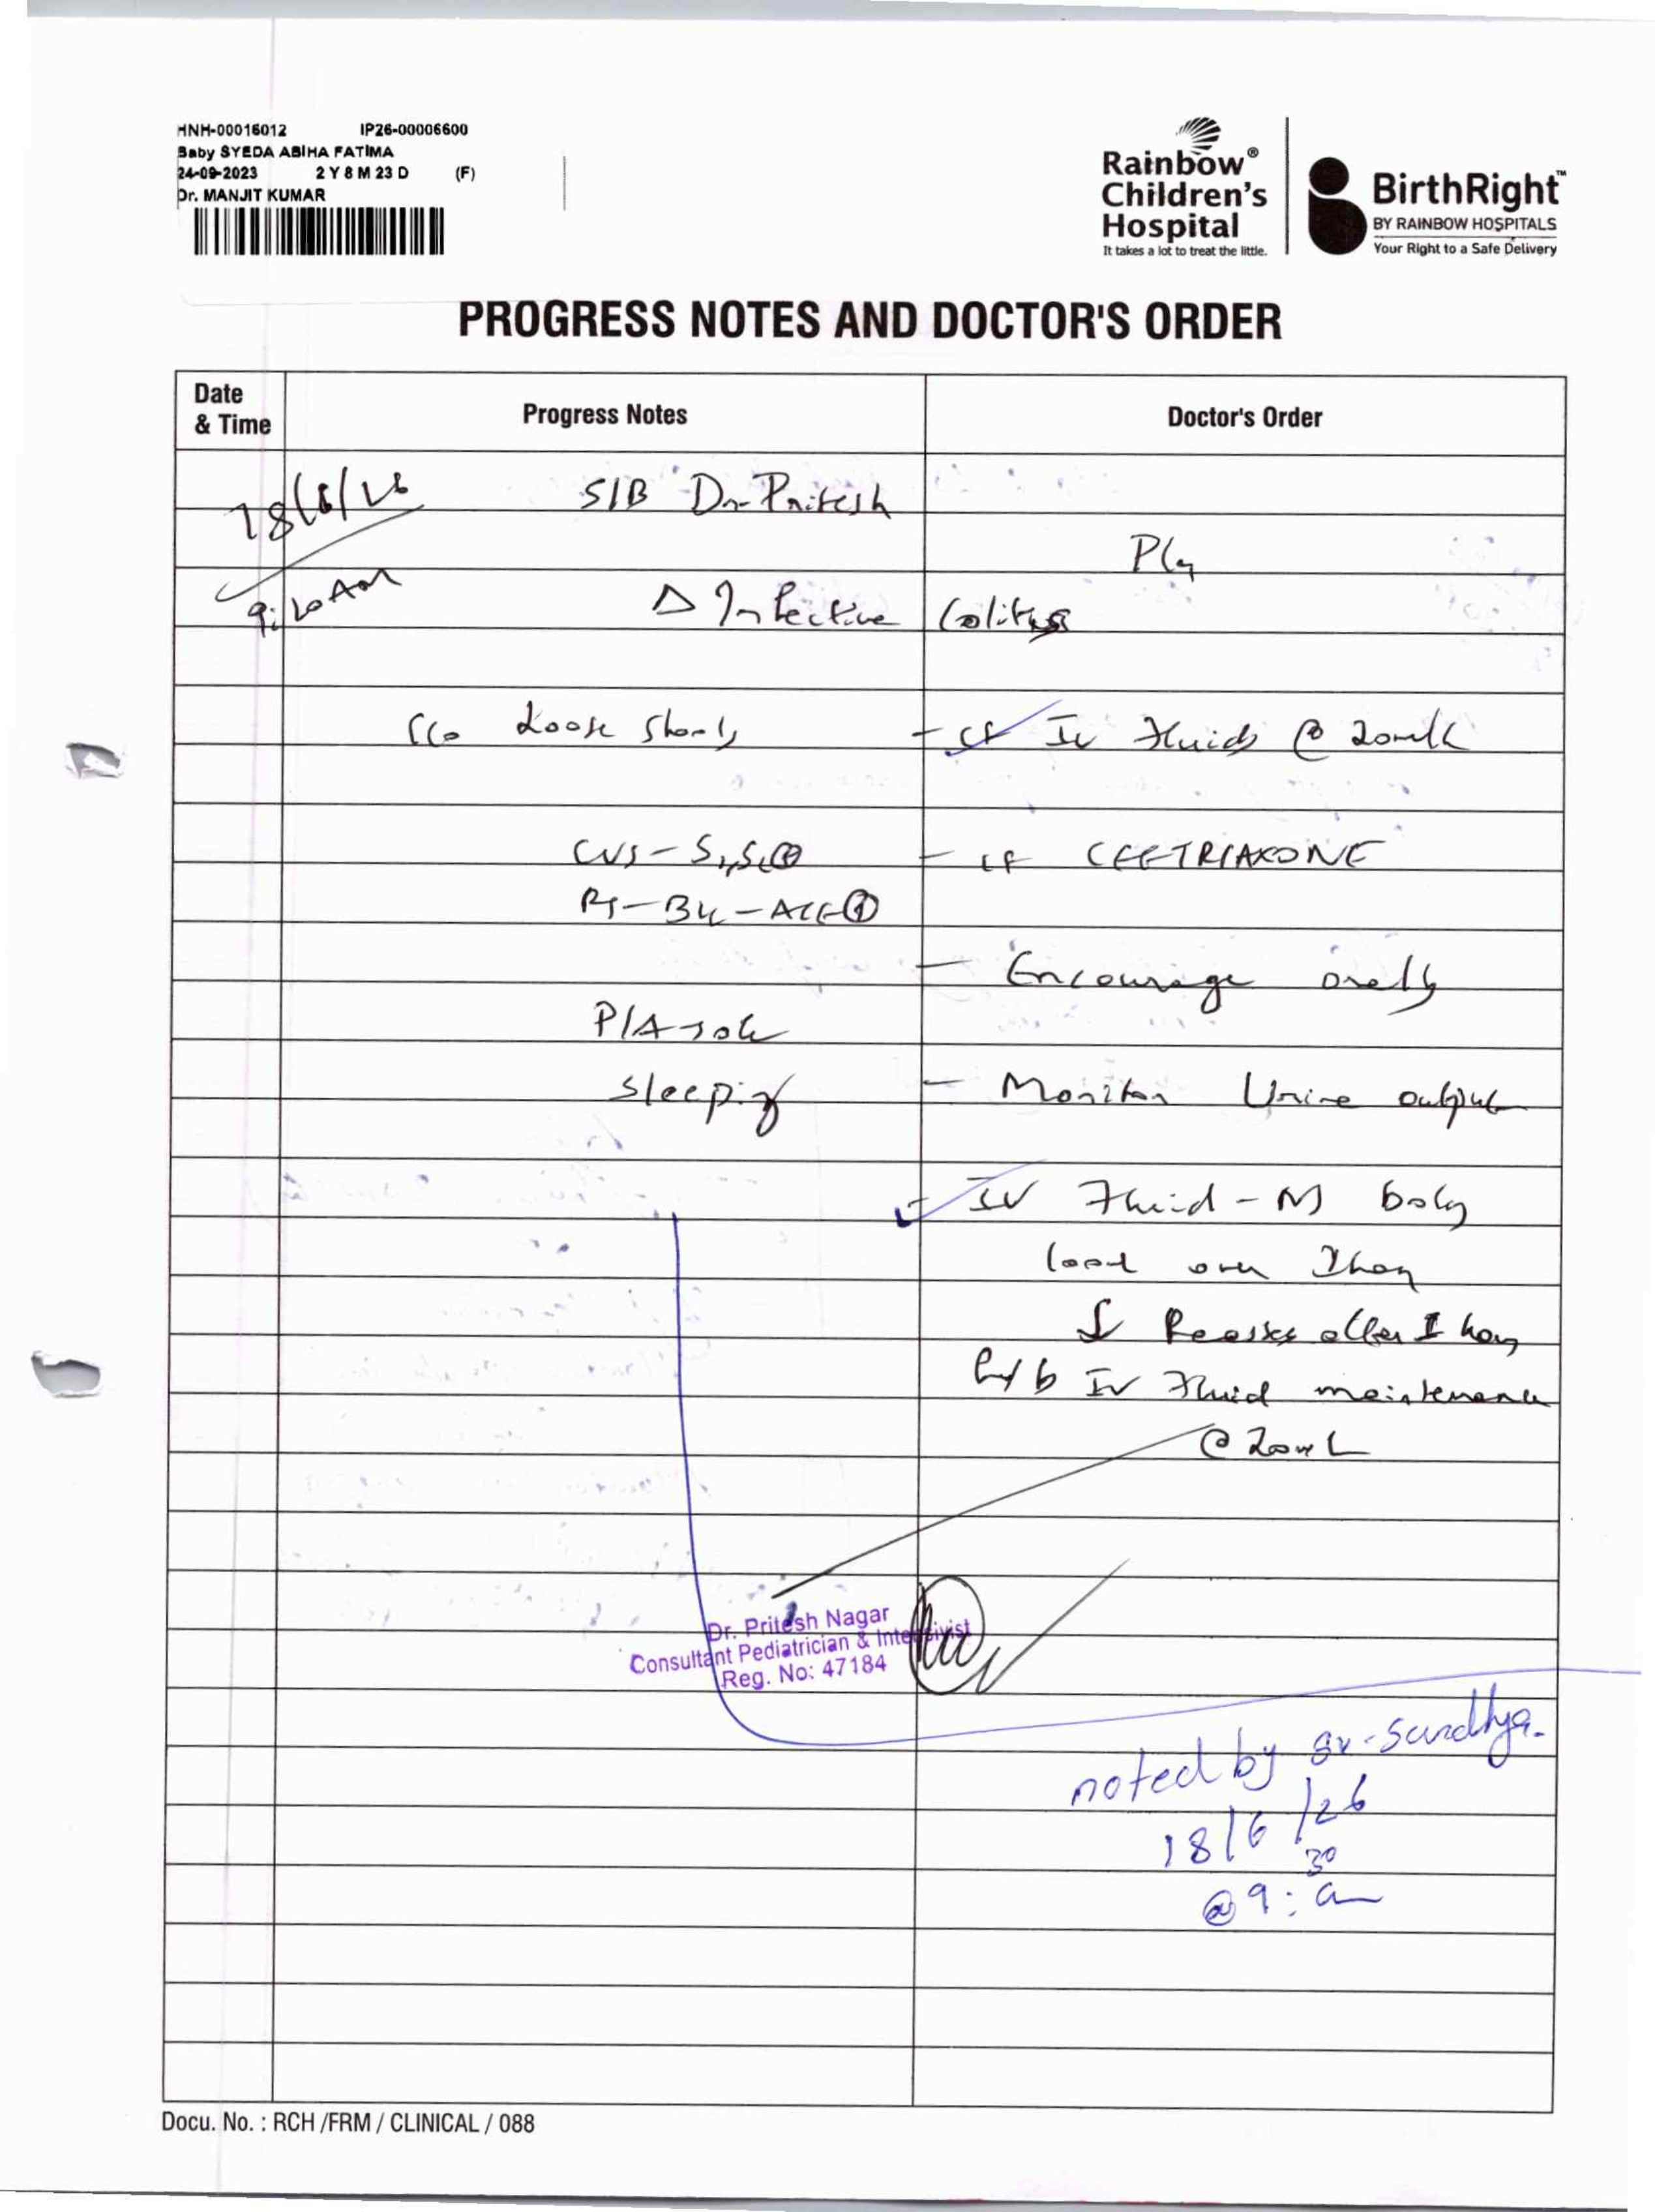 HNH-00016012 IP26-00006600
Baby SYEDA ABIHA FATIMA
24-09-2023 2 Y 8 M 23 D (F)
Dr. MANJIT KUMAR
Rainbow®
Children's
Hospital
It takes a lot to treat the little.
BirthRight™
BY RAINBOW HOSPITALS
Your Right to a Safe Delivery
PROGRESS NOTES AND DOCTOR'S ORDER
Date
& Time
Progress Notes
Doctor's Order
18/6/26
S/B Dr Pritesh
Δ Infective Colitis
Loose stools
IV Fluids @ 20ml
CVS - S1,S2
CEFTRIAXONE
Encourage orally
P/A soft
sleeping
- Monitor Urine output
IV Fluid -
over 1 hour
Reassess after 1 hour
IV Fluid maintenance
@ 20ml
Dr. Pritesh Nagar
Consultant Pediatrician & Intensivist
Reg. No: 47184
noted by Sr. Sandhya.
18/6/26
@ 9:30 am
Docu. No. : RCH /FRM / CLINICAL / 088